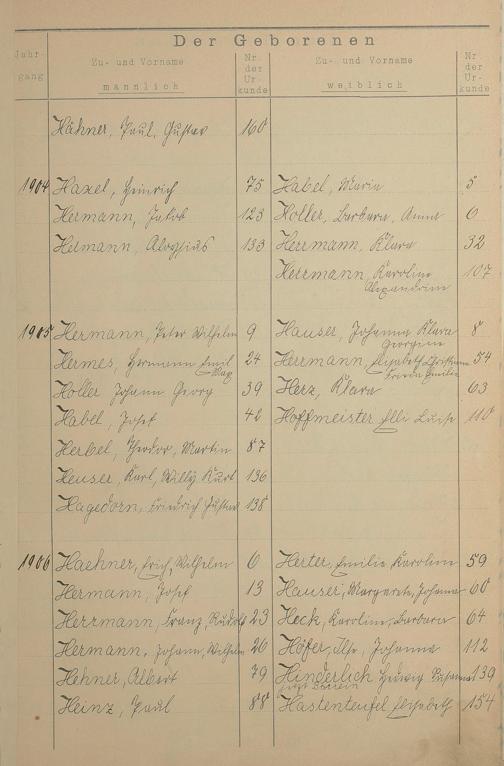 Der Geborenen
Jahr-
gang
Zu- und Vorname
männlich
Nr.
der
Ur-
kunde
Zu- und Vorname
weiblich
Nr
der
Ur-
kunde
Hähner, Paul, Gustav 160
1904 Haxel, Heinrich 75 Habel, Maria 5
Hermann, Jakob 123 Holler, Barbara, Anna 6
Hermann, Aloysius 133 Herrmann, Klara 32
Herrmann, Karoline 107
Alexandrine
1905 Hermann, Peter Wilhelm 9 Hauser, Johanna Klara 8
Georgine
Hermes, Hermann Emil 24 Herrmann, Elisabeth Christiane 54
Max Frieda Emilie
Holler Johann Georg 39 Herz, Klara 63
Habel, Josef 42 Hoffmeister Elli Luise 110
Herbel, Theodor, Martin 87
Heuser, Karl, Willy Kurt 136
Hagedorn, Friedrich Gustav 138
1906 Haehner, Erich, Wilhelm 6 Herter, Emilie, Karoline 59
Hermann, Josef 13 Hauser, Margarete, Johanna 60
Herrmann, Franz, Rudolf 23 Heck, Karoline, Barbara 64
Hermann, Johann, Wilhelm 26 Höfer, Ilse, Johanna 112
Hehner, Albert 79 Hinderlich Hedwig Susanna 139
Heinz, Paul 88 Hastenteufel Elisabeth 154